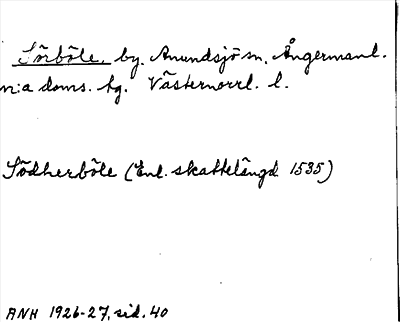 Sörböle, by. Anundsjö sn. Ångermanl.
n:a doms. hg. Västernorrl. l.
Södherböle (Enl. skattelängd 1535)
ANH 1926-27, sid. 40